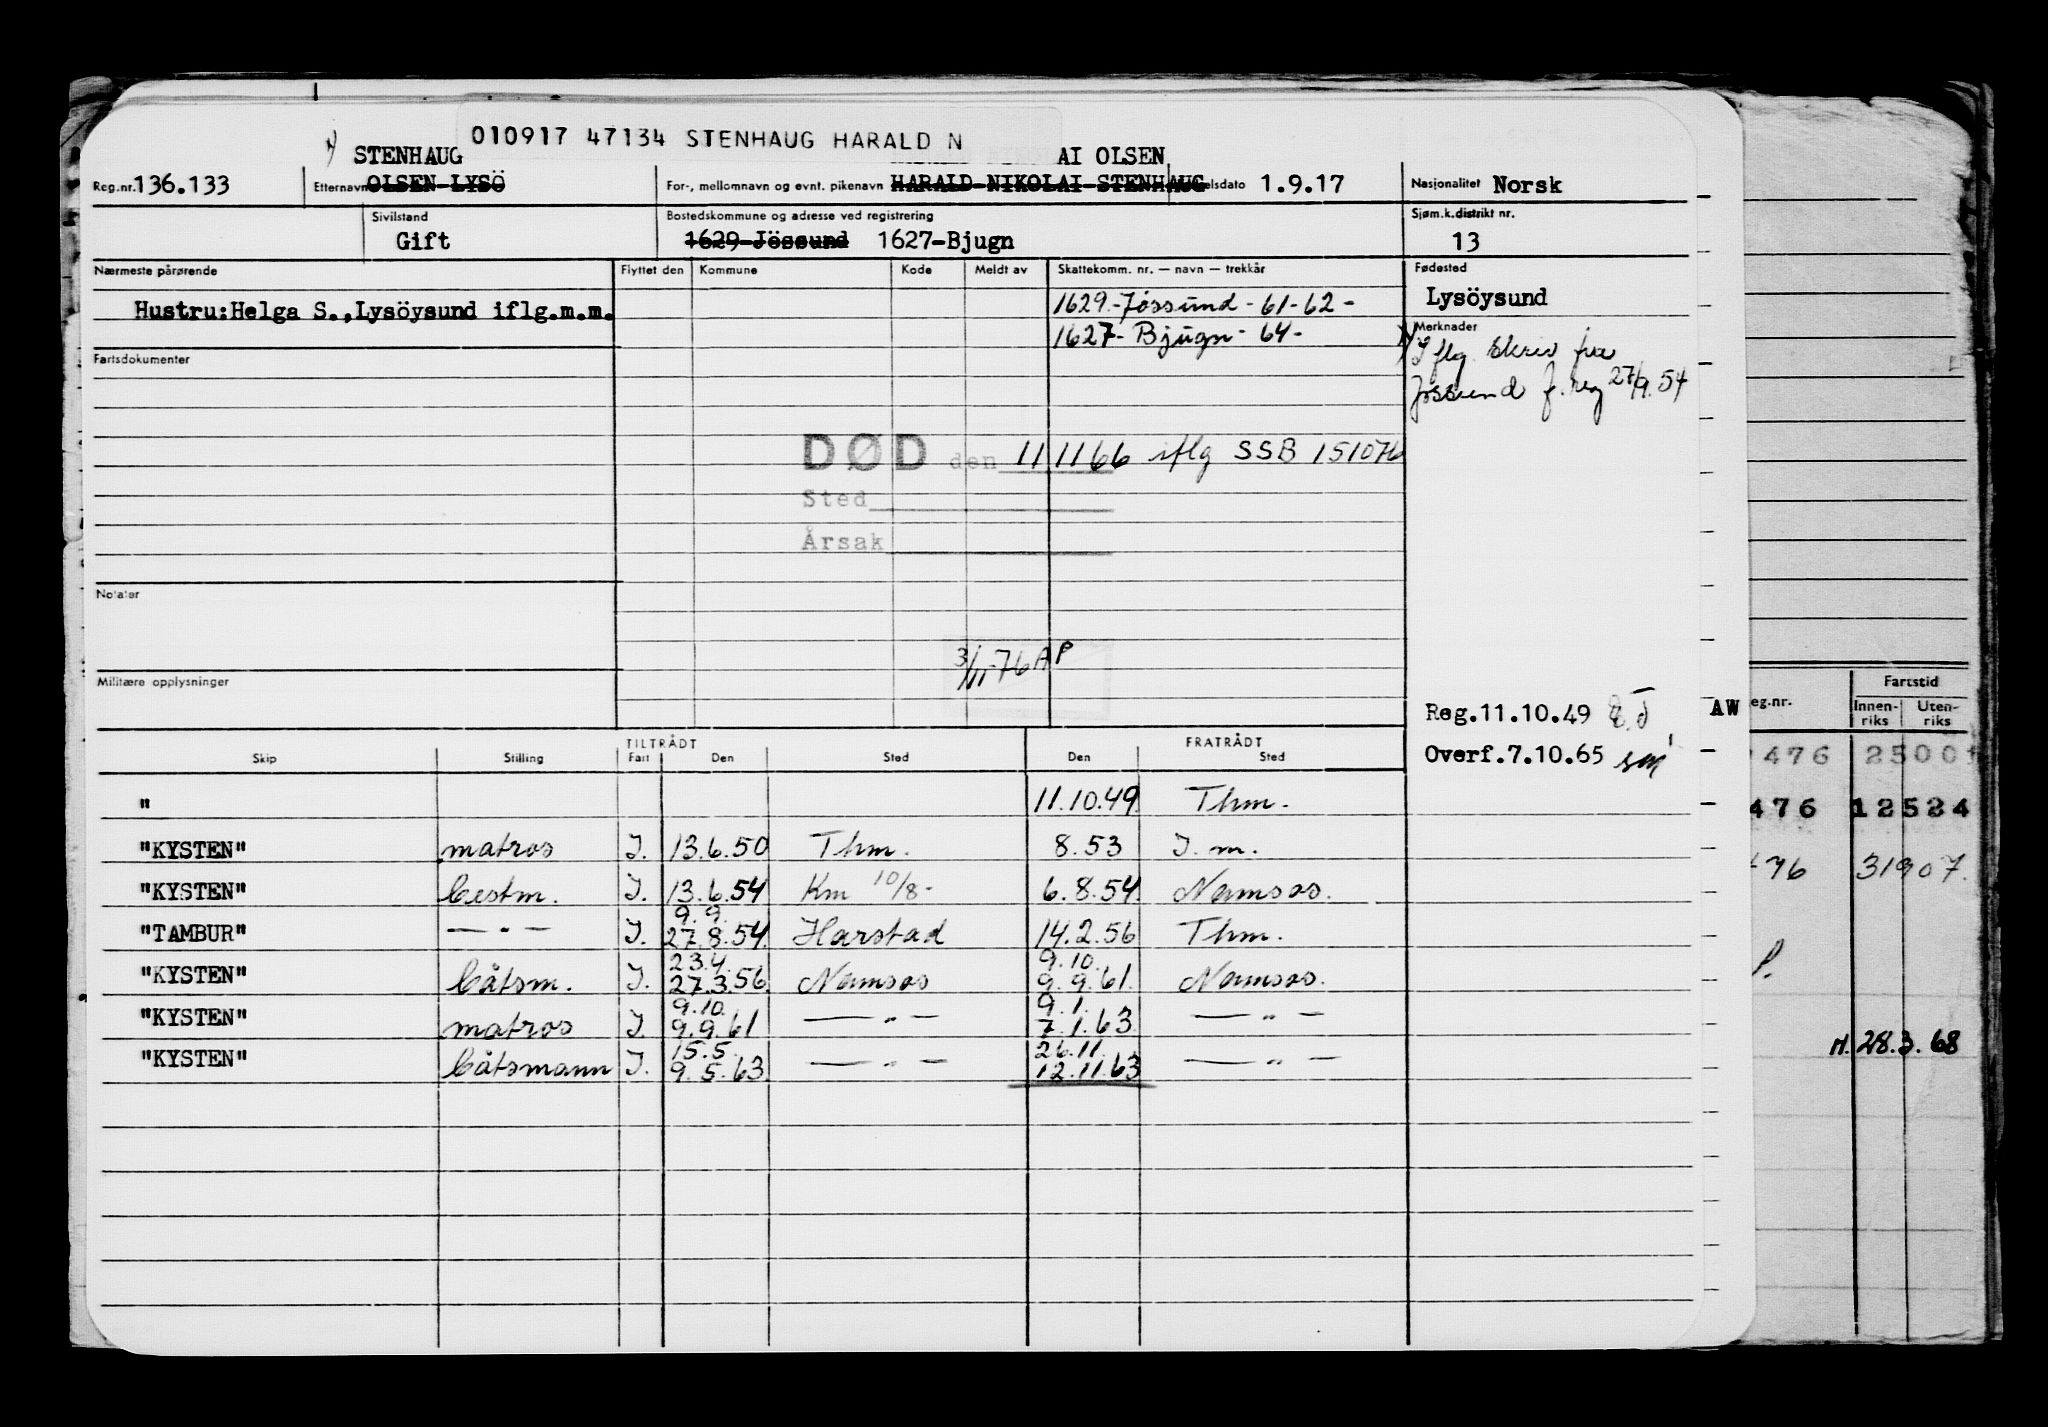 010917 47134 STENHAUG HARALD N
STENHAUG AI OLSEN
Reg.nr. 136.133 Etternavn OLSEN LYSÖ For-, mellomnavn og evnt. pikenavn HARALD NIKOLAI STENHAUG elsdato 1.9.17 Nasjonalitet Norsk
Sivilstand Bostedskommune og adresse ved registrering Sjøm.k.distrikt nr.
Gift 1629-Jössund 1627-Bjugn 13
Nærmeste pårørende Flyttet den Kommune Kode Meldt av Skattekomm. nr. — navn — trekkår Fødested
Hustru:Helga S.,Lysöysund iflg.m.m. 1629-Jössund - 61-62 - Lysöysund
1627- Bjugn - 64 - Merknader
Fartsdokumenter Iflg. skriv fra
Jössund f.reg 27/9.54
DØD den 11 11 66 iflg SSB 151076
Sted
Årsak
Notater
3/11-76 AP
Militære opplysninger
Reg.11.10.49 AW
Overf.7.10.65
TILTRÅDT FRATRÅDT
Skip Stilling Fart Den Sted Den Sted
" 11.10.49 Thm.
"KYSTEN" matros I. 13.6.50 Thm. 8.53 I.m.
"KYSTEN" bestm. I. 13.6.54 Km 10/8- 6.8.54 Namsos.
9.9.
"TAMBUR" — " — I. 27.8.54 Harstad 14.2.56 Thm.
23.4. 9.10.
"KYSTEN" båtsm. I. 27.3.56 Namsos 9.9.61. Namsos.
9.10. 9.1.
"KYSTEN" matros I. 9.9.61 — " — 7.1.63 — " —
15.5. 26.11.
"KYSTEN" båtsmann I. 9.5.63 — " — 12.11.63 — " —
eg.nr. Fartstid
Innen-riks Uten-riks
476 2500
476 12524
76 31907.
P.
M. 28.3.68